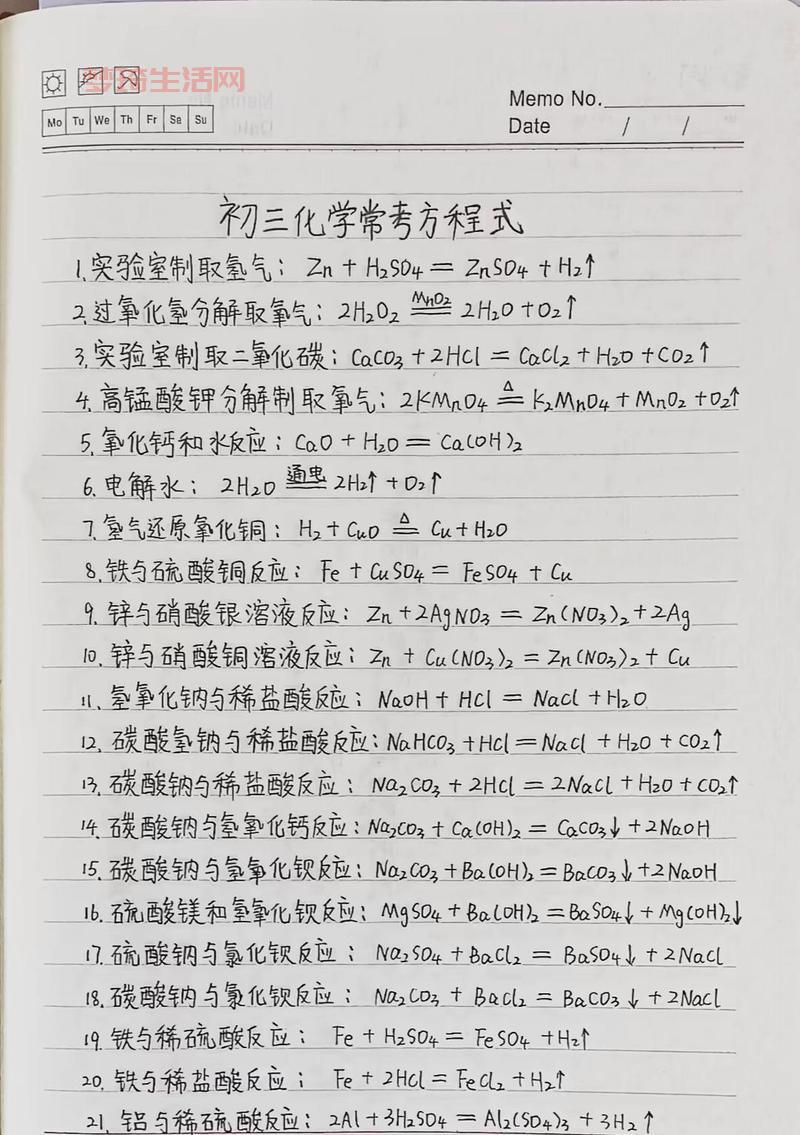 梦琦生活网
Memo No.
Mo Tu We Th Fr Sa Su
Date / /
初三化学常考方程式
1.实验室制取氢气：Zn + H₂SO₄ = ZnSO₄ + H₂↑
2.过氧化氢分解取氧气：2H₂O₂ MnO₂ 2H₂O + O₂↑
3.实验室制取二氧化碳：CaCO₃ + 2HCl = CaCl₂ + H₂O + CO₂↑
4.高锰酸钾分解制取氧气：2KMnO₄ △ K₂MnO₄ + MnO₂ + O₂↑
5.氧化钙和水反应：CaO + H₂O = Ca(OH)₂
6.电解水：2H₂O 通电 2H₂↑ + O₂↑
7.氢气还原氧化铜：H₂ + CuO △ Cu + H₂O
8.铁与硫酸铜反应：Fe + CuSO₄ = FeSO₄ + Cu
9.锌与硝酸银溶液反应：Zn + 2AgNO₃ = Zn(NO₃)₂ + 2Ag
10.锌与硝酸铜溶液反应：Zn + Cu(NO₃)₂ = Zn(NO₃)₂ + Cu
11.氢氧化钠与稀盐酸反应：NaOH + HCl = NaCl + H₂O
12.碳酸氢钠与稀盐酸反应：NaHCO₃ + HCl = NaCl + H₂O + CO₂↑
13.碳酸钠与稀盐酸反应：Na₂CO₃ + 2HCl = 2NaCl + H₂O + CO₂↑
14.碳酸钠与氢氧化钙反应：Na₂CO₃ + Ca(OH)₂ = CaCO₃↓ + 2NaOH
15.碳酸钠与氢氧化钡反应：Na₂CO₃ + Ba(OH)₂ = BaCO₃↓ + 2NaOH
16.硫酸镁和氢氧化钡反应：MgSO₄ + Ba(OH)₂ = BaSO₄↓ + Mg(OH)₂↓
17.硫酸钠与氯化钡反应：Na₂SO₄ + BaCl₂ = BaSO₄↓ + 2NaCl
18.碳酸钠与氯化钡反应：Na₂CO₃ + BaCl₂ = BaCO₃↓ + 2NaCl
19.铁与稀硫酸反应：Fe + H₂SO₄ = FeSO₄ + H₂↑
20.铁与稀盐酸反应：Fe + 2HCl = FeCl₂ + H₂↑
21.铝与稀硫酸反应：2Al + 3H₂SO₄ = Al₂(SO₄)₃ + 3H₂↑